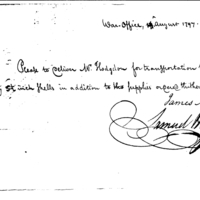 War-Office, August 1797.
Please to deliver Mr. Hodgdon for transportation
inch shells in addition to the supplies
James
Samuel